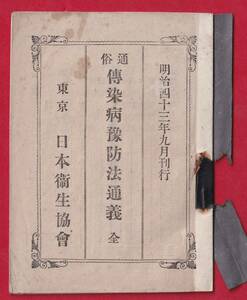 明治四十三年九月刊行
通俗 傳染病豫防法通義 全
東京 日本衞生協會